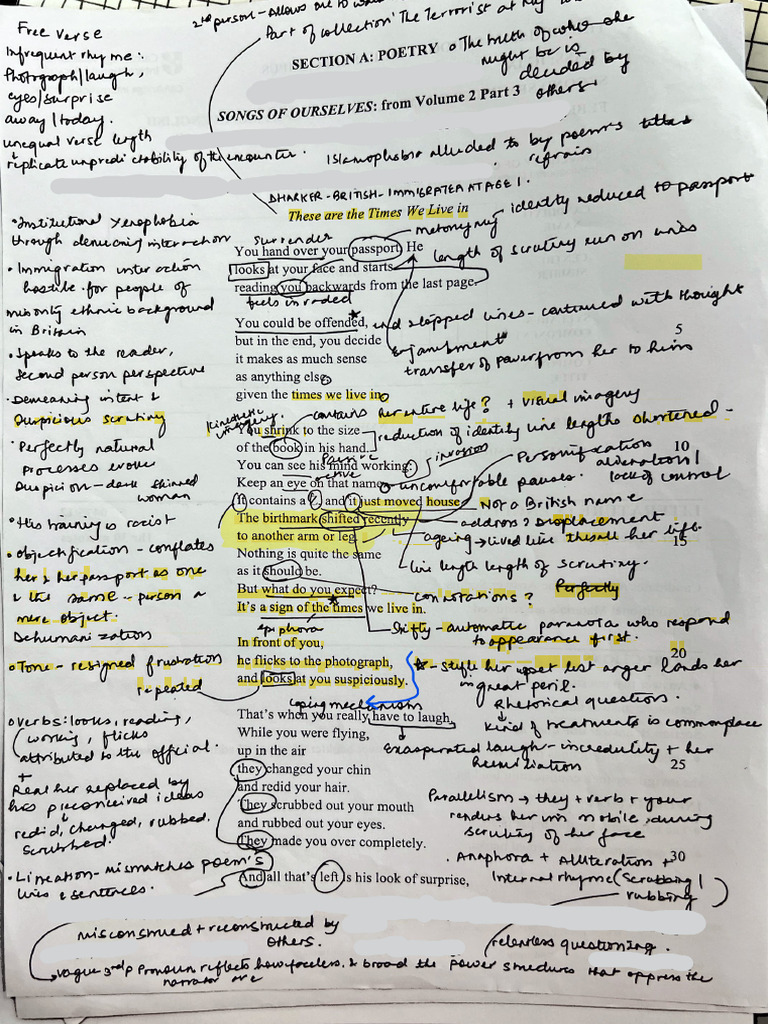 2nd person - allows one to
Part of collection 'The Terrorist at My
Free Verse
Infrequent rhyme:
Photograph/laugh,
eyes/surprise
away/today.
unequal verse length
replicate unpredictability of the encounter.
SECTION A: POETRY
The truth of who she
might be is
decided by
others.
SONGS OF OURSELVES: from Volume 2 Part 3
Islamophobia alluded to by poem's
refrain
DHARKER - BRITISH - IMMIGRATED AT AGE 1.
These are the Times We Live in
metonymy - identity reduced to passport
Surrender
You hand over your passport. He
looks at your face and starts
reading you backwards from the last page.
length of scrutiny run on lines
feels invaded
You could be offended,
but in the end, you decide
it makes as much sense
as anything else,
given the times we live in.
end stopped lines - continued with thought
5
Enjambment
transfer of power from her to him
Kinesthetic
imagery.
contains her entire life? + visual imagery
You shrink to the size
of the book in his hand.
You can see his mind working:
Keep an eye on that name.
It contains a Z, and it just moved house.
The birthmark shifted recently
to another arm or leg.
Nothing is quite the same
as it should be.
But what do you expect?
It's a sign of the times we live in.
reduction of identity line lengths shortened -
10
invasion
Personification
alienation/
lack of control
Passive
active
uncomfortable pauses.
Not a British name
address? Displacement
ageing → lived like this all her life
15
line length length of scrutiny.
connotations?
Shifty - automatic paranoia who respond
to appearance first.
epiphora
In front of you,
he flicks to the photograph,
and looks at you suspiciously.
20
- stifle her upset lest anger lands her
in great peril.
Rhetorical question.
Kind of treatments is commonplace
repeated
coping mechanism
That's when you really have to laugh.
While you were flying,
up in the air
they changed your chin
and redid your hair.
They scrubbed out your mouth
and rubbed out your eyes.
They made you over completely.
And all that's left is his look of surprise,
Exasperated laugh - incredulity + her
humiliation
25
Parallelism → they + verb + your
renders her immobile during
scrutiny of her face
. Anaphora + Alliteration +
30
Internal rhyme (Scrubbing/
rubbing)
• Institutional Xenophobia
through demeaning interaction
• Immigration interaction
hostile for people of
minority ethnic background
in Britain
• Speaks to the reader,
Second person perspective
• Demeaning intent &
Suspicious scrutiny
• Perfectly natural
processes evoke
suspicion - dark skinned
woman
• His training is racist
• Objectification - conflates
her & her passport as one
& the same - person a
mere object.
Dehumanization
• Tone - resigned frustration
• Verbs: looks, reading,
working, flicks
attributed to the official.
+
Real her replaced by
his preconceived ideas
redid, changed, rubbed.
Scrubbed.
• Lineation - mismatches poem's
lines & sentences.
misconstrued + reconstructed by
others.
relentless questioning.
vague 3rd P Pronoun reflects how faceless & broad the power structures that oppress the
narrator are